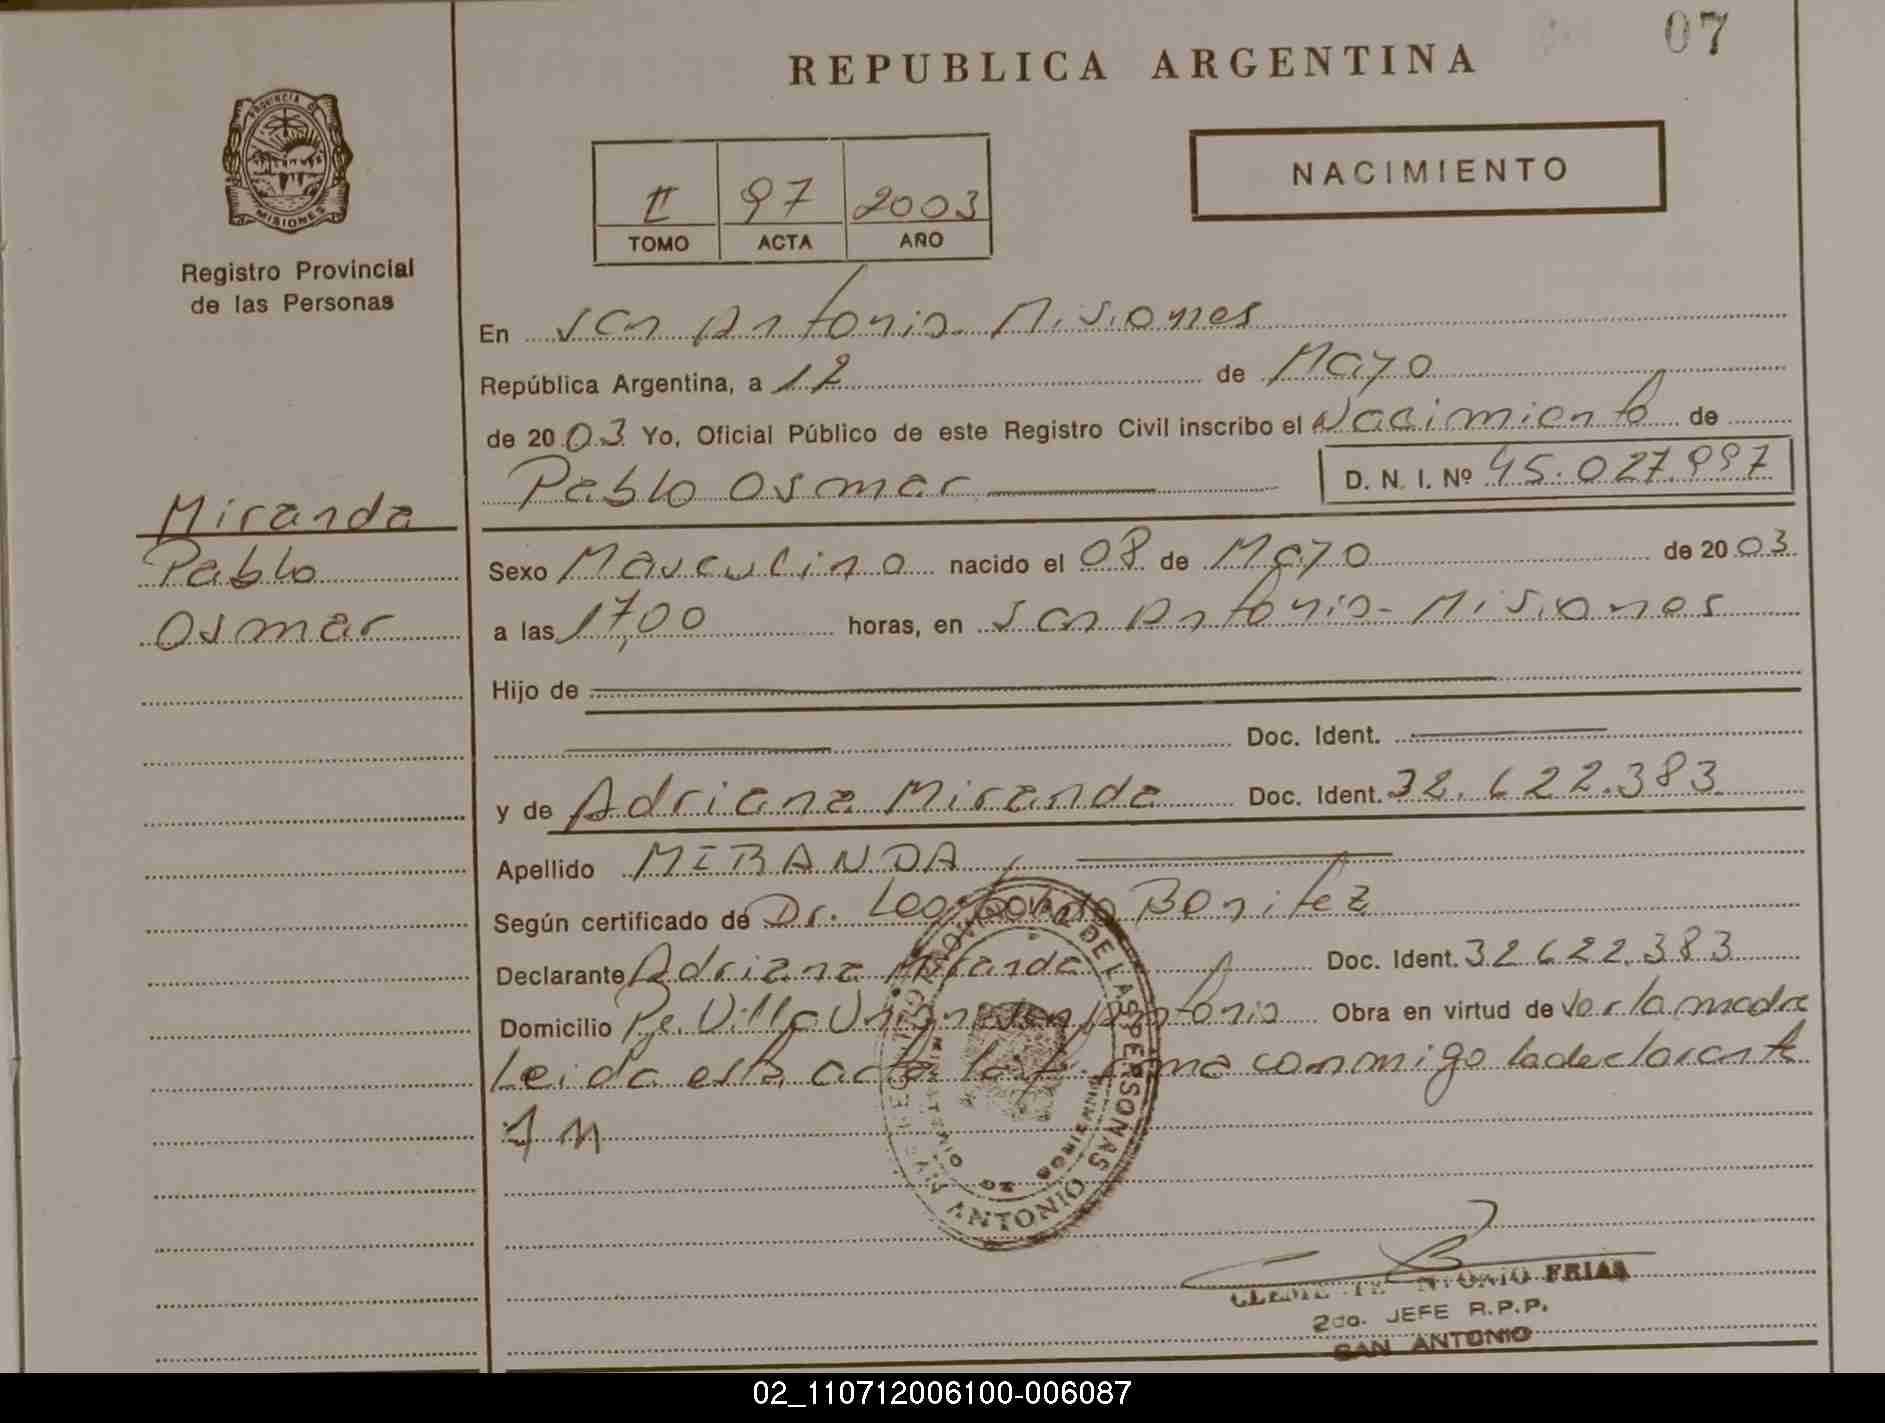 07
REPUBLICA ARGENTINA
PROVINCIA DE
MISIONES
Registro Provincial
de las Personas
NACIMIENTO
II 97 2003
TOMO ACTA AÑO
En San Antonio - Misiones
República Argentina, a 12 de Mayo
de 2003 Yo, Oficial Público de este Registro Civil inscribo el Nacimiento de
Pablo Osmar D. N. I. Nº 45.027.997
Miranda
Pablo
Osmar
Sexo Masculino nacido el 08 de Mayo de 2003
a las 17,00 horas, en San Antonio - Misiones
Hijo de
Doc. Ident.
y de Adriana Miranda Doc. Ident. 32.622.383
Apellido MIRANDA
Según certificado de Dr. Benitez
Declarante Adriana Miranda Doc. Ident. 32622.383
Domicilio Villa Union San Antonio Obra en virtud de ser la madre
Leida esta acta la firma conmigo la declarante
REGISTRO PROVINCIAL DE LAS PERSONAS
MINISTERIO DE GOBIERNO
SAN ANTONIO
CLEMENTE ANTONIO FRIAS
2do. JEFE R.P.P.
SAN ANTONIO
02_110712006100-006087